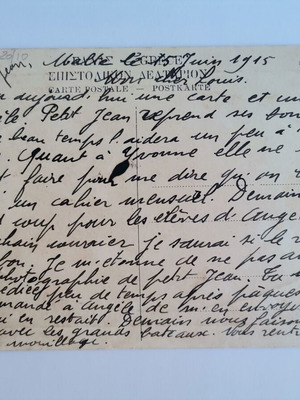 Jean,
Malte le 15 Juin 1915
GRÈCE
ΕΠΙΣΤΟΛΙΚΟΝ ΔΕΛΤΑΡΙΟΝ
CARTE POSTALE - POSTKARTE
cher Louis.
aujourd'hui une carte et un
Petit Jean reprend ses
beau temps l'aidera un peu à
Quant à Yvonne elle ne
faire pour me dire qu'on
un cahier mensuel. Demain
coup pour les élèves d'Ange
chain courrier je saurai si le
bon. Je m'étonne de ne pas
photographie de petit Jean. Tu
peu de temps après pâques
demandé à Angèle de m'en envoyer
en restait. Demain nous faisons
avec les grands bateaux. Nous
mouillage.